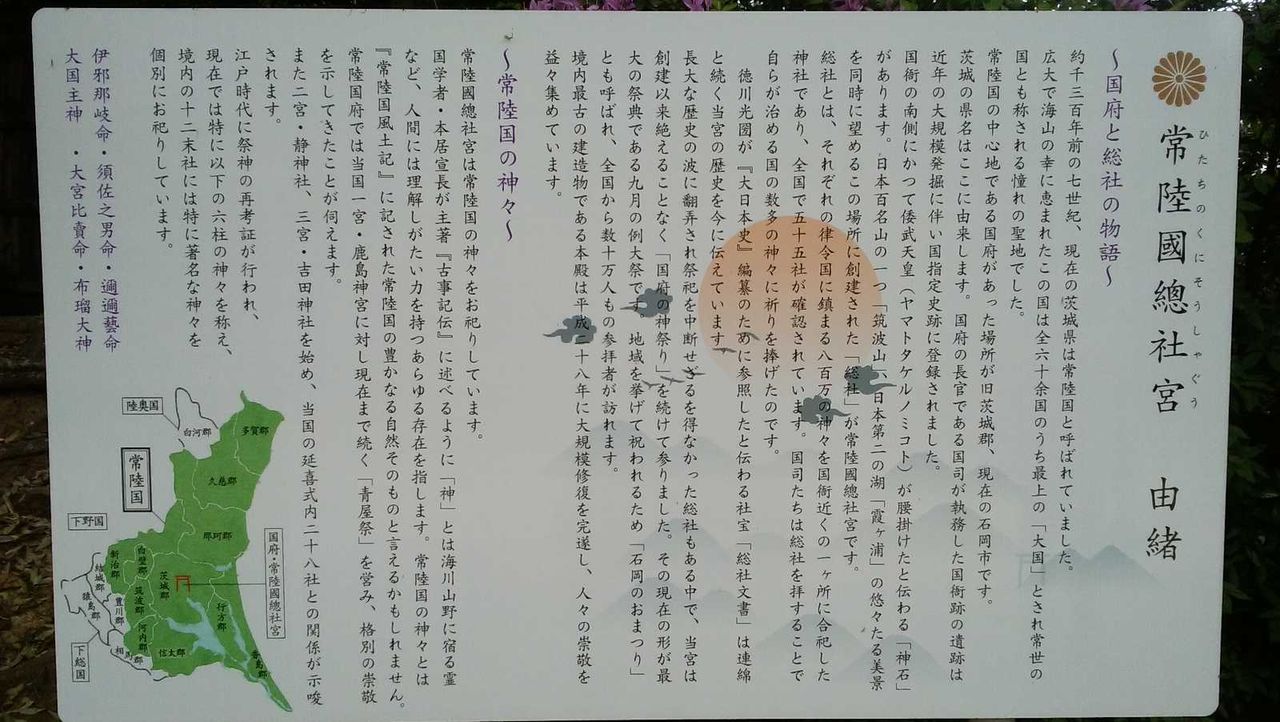 常陸國總社宮　由緒
ひたちのくにそうしゃぐう
～国府と総社の物語～
約千三百年前の七世紀、現在の茨城県は常陸国と呼ばれていました。
広大で海山の幸に恵まれたこの国は全六十余国のうち最上の「大国」とされ常世の
国とも称される憧れの聖地でした。
常陸国の中心地である国府があった場所が旧茨城郡、現在の石岡市です。
茨城の県名はここに由来します。国府の長官である国司が執務した国衙跡の遺跡は
近年の大規模発掘に伴い国指定史跡に登録されました。
国衙の南側にかつて倭武天皇（ヤマトタケルノミコト）が腰掛けたと伝わる「神石」
があります。日本百名山の一つ「筑波山」、日本第二の湖「霞ヶ浦」の悠々たる美景
を同時に望めるこの場所に創建された「総社」が常陸國總社宮です。
総社とは、それぞれの律令国に鎮まる八百万の神々を国衙近くの一ヶ所に合祀した
神社であり、全国で五十五社が確認されています。国司たちは総社を拝することで
自らが治める国の数多の神々に祈りを捧げたのです。
徳川光圀が『大日本史』編纂のために参照したと伝わる社宝「総社文書」は連綿
と続く当宮の歴史を今に伝えています。
長大な歴史の波に翻弄され祭祀を中断せざるを得なかった総社もある中で、当宮は
創建以来絶えることなく「国府の神祭り」を続けて参りました。その現在の形が最
大の祭典である九月の例大祭です。地域を挙げて祝われるため「石岡のおまつり」
とも呼ばれ、全国から数十万人もの参拝者が訪れます。
境内最古の建造物である本殿は平成二十八年に大規模修復を完遂し、人々の崇敬を
益々集めています。
～常陸国の神々～
常陸國總社宮は常陸国の神々をお祀りしています。
国学者・本居宣長が主著『古事記伝』に述べるように「神」とは海川山野に宿る霊
など、人間には理解しがたい力を持つあらゆる存在を指します。常陸国の神々とは
『常陸国風土記』に記された常陸国の豊かなる自然そのものと言えるかもしれません。
常陸国府では当国一宮・鹿島神宮に対し現在まで続く「青屋祭」を営み、格別の崇敬
を示してきたことが伺えます。
また二宮・静神社、三宮・吉田神社を始め、当国の延喜式内二十八社との関係が示唆
されます。
江戸時代に祭神の再考証が行われ、
現在では特に以下の六柱の神々を称え、
境内の十二末社には特に著名な神々を
個別にお祀りしています。
伊邪那岐命・須佐之男命・邇邇藝命
大国主神・大宮比賣命・布瑠大神
陸奥国
白河郡
多賀郡
常陸国
久慈郡
下野国
那珂郡
国府・常陸國總社宮
新治郡
白壁郡
結城郡
茨城郡
筑波郡
猿島郡
豊川郡
行方郡
河内郡
下総国
相馬郡
信太郡
香島郡